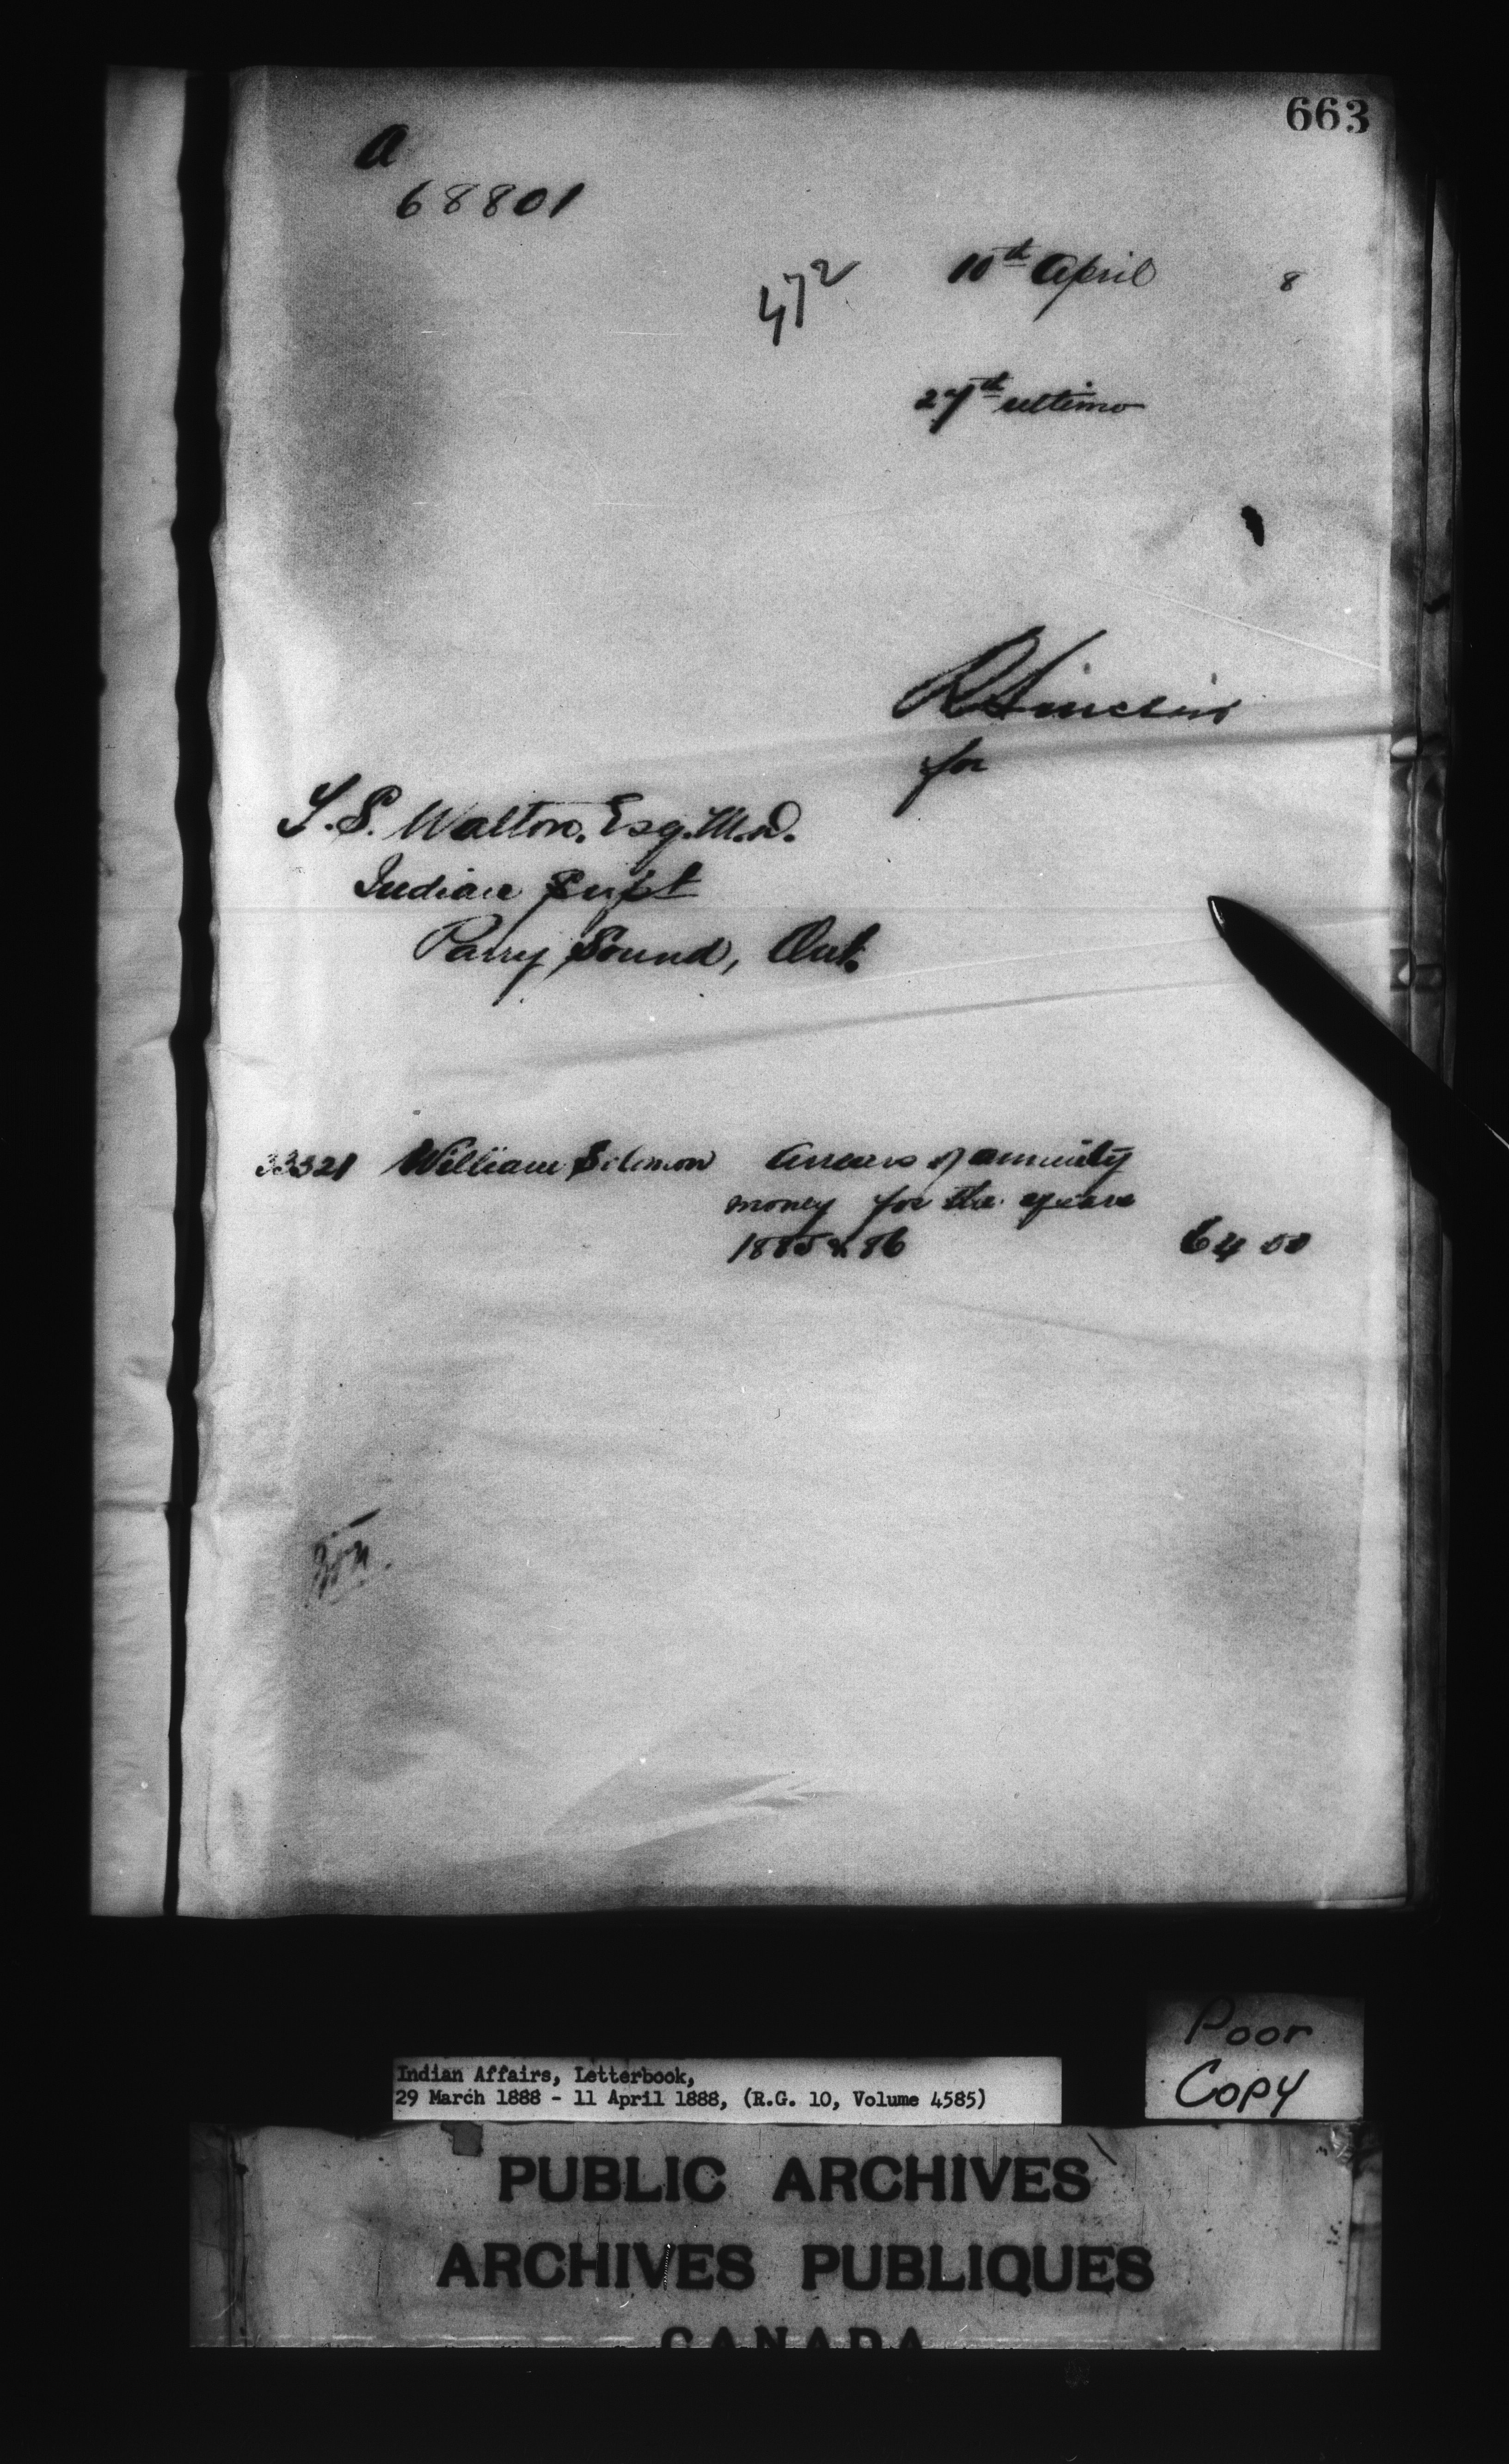 663
A
68801
472
10th April 8
27th ultimo
R Sinclair
for
T. S. Walton, Esq. M.D.
Indian Supt
Parry Sound, Ont.
33321 William Solomon Arrears of annuity
money for the years
1885 & 86 64 00
Poor
Copy
Indian Affairs, Letterbook,
29 March 1888 - 11 April 1888, (R.G. 10, Volume 4585)
PUBLIC ARCHIVES
ARCHIVES PUBLIQUES
CANADA